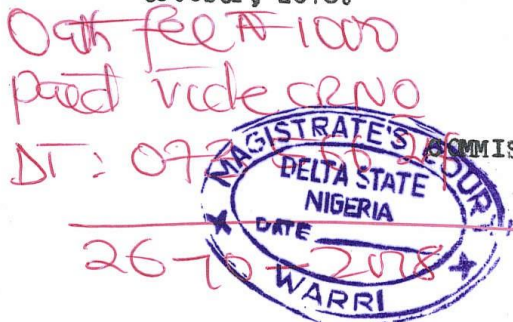 2018.
Oath fee ₦1000
paid vide CRNO
DT: 07
COMMIS
MAGISTRATE'S COURT
DELTA STATE
NIGERIA
DATE
26-10-2018
WARRI